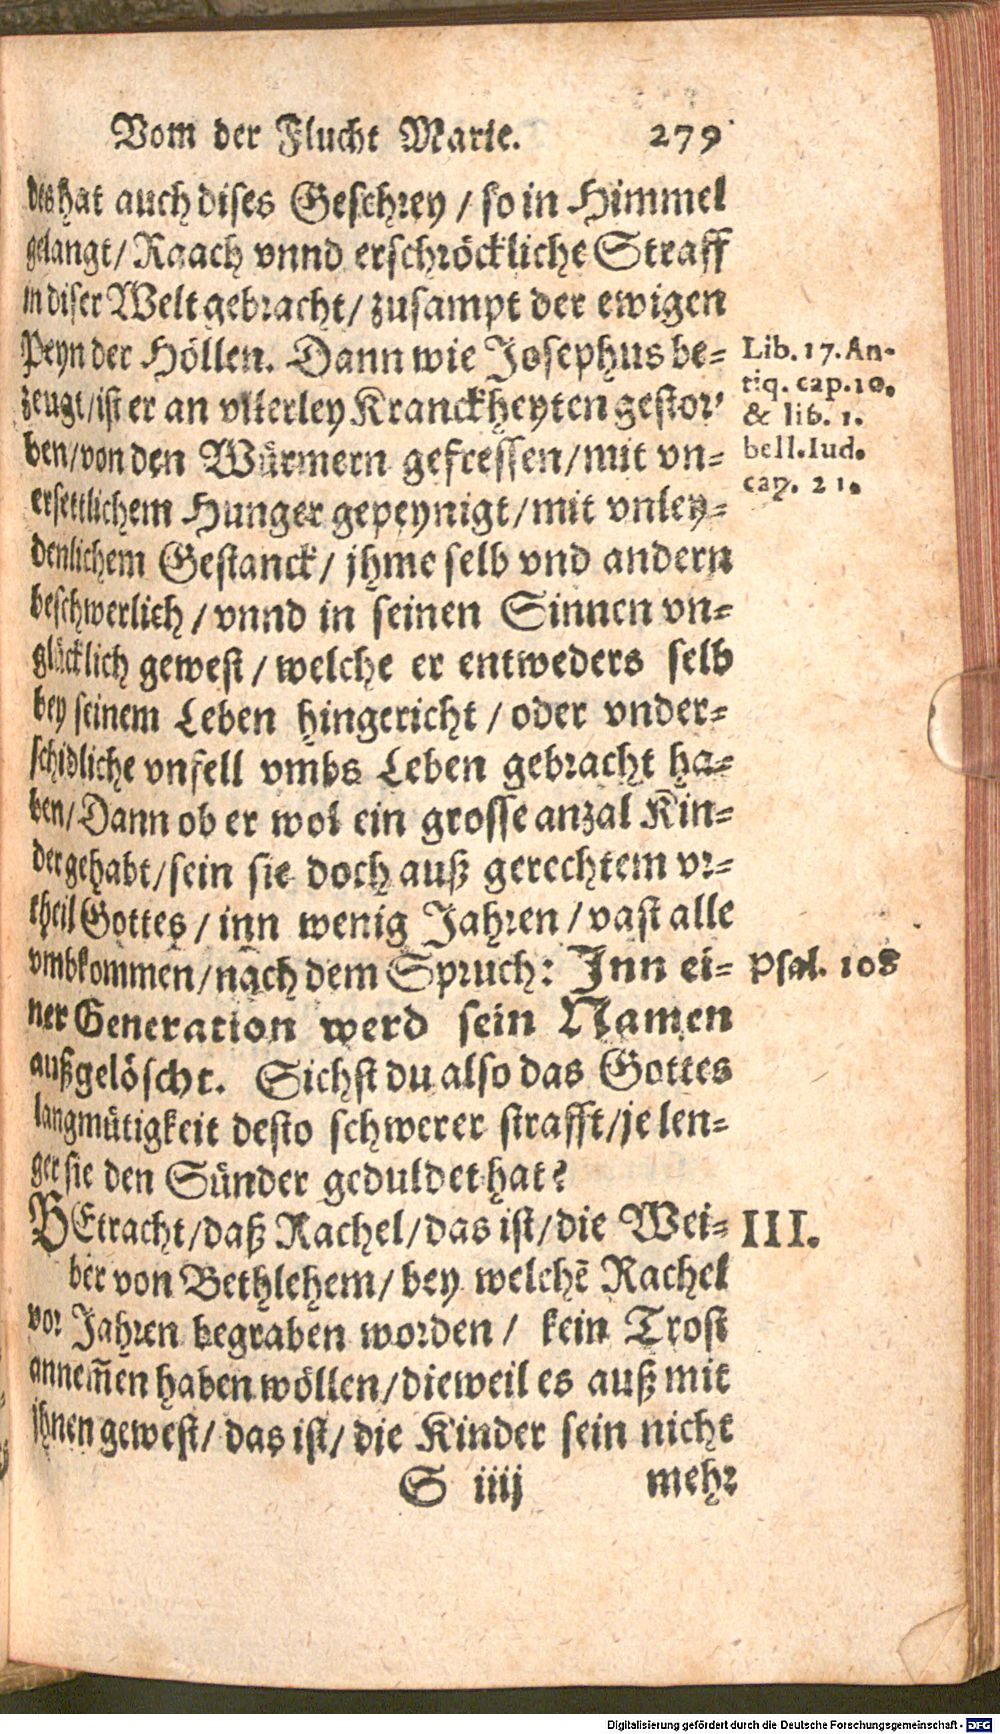 Vom der Flucht Marie. 279
des hat auch dises Geschrey / so in Himmel
gelangt / Raach vnnd erschröckliche Straff
in diser Welt gebracht / zusampt der ewigen
Peyn der Höllen. Dann wie Josephus be-
zeugt / ist er an vllerley Kranckheyten gestor-
ben / von den Würmern gefressen / mit vn-
ersettlichem Hunger gepeynigt / mit vnley-
denlichem Gestanck / jhme selb vnd andern
beschwerlich / vnnd in seinen Sinnen vn-
glücklich gewest / welche er entweders selb
bey seinem Leben hingericht / oder vnder-
schidliche vnfell vmbs Leben gebracht ha-
ben / Dann ob er wol ein grosse anzal Kin-
der gehabt / sein sie doch auß gerechtem vr-
theil Gottes / inn wenig Jahren / vast alle
vmbkommen / nach dem Spruch: Inn ei-
ner Generation werd sein Namen
außgelöscht. Sichst du also das Gottes
langmütigkeit desto schwerer strafft / je len-
ger sie den Sünder geduldet hat?
BEtracht / daß Rachel / das ist / die Wei-
ber von Bethlehem / bey welchē Rachel
vor Jahren begraben worden / kein Trost
annem̄en haben wöllen / dieweil es auß mit
jhnen gewest / das ist / die Kinder sein nicht
S iiij mehr
Lib. 17. An-
tiq. cap. 10.
& lib. 1.
bell. Iud.
cap. 21.
Psal. 108
III.
Digitalisierung gefördert durch die Deutsche Forschungsgemeinschaft - DFG